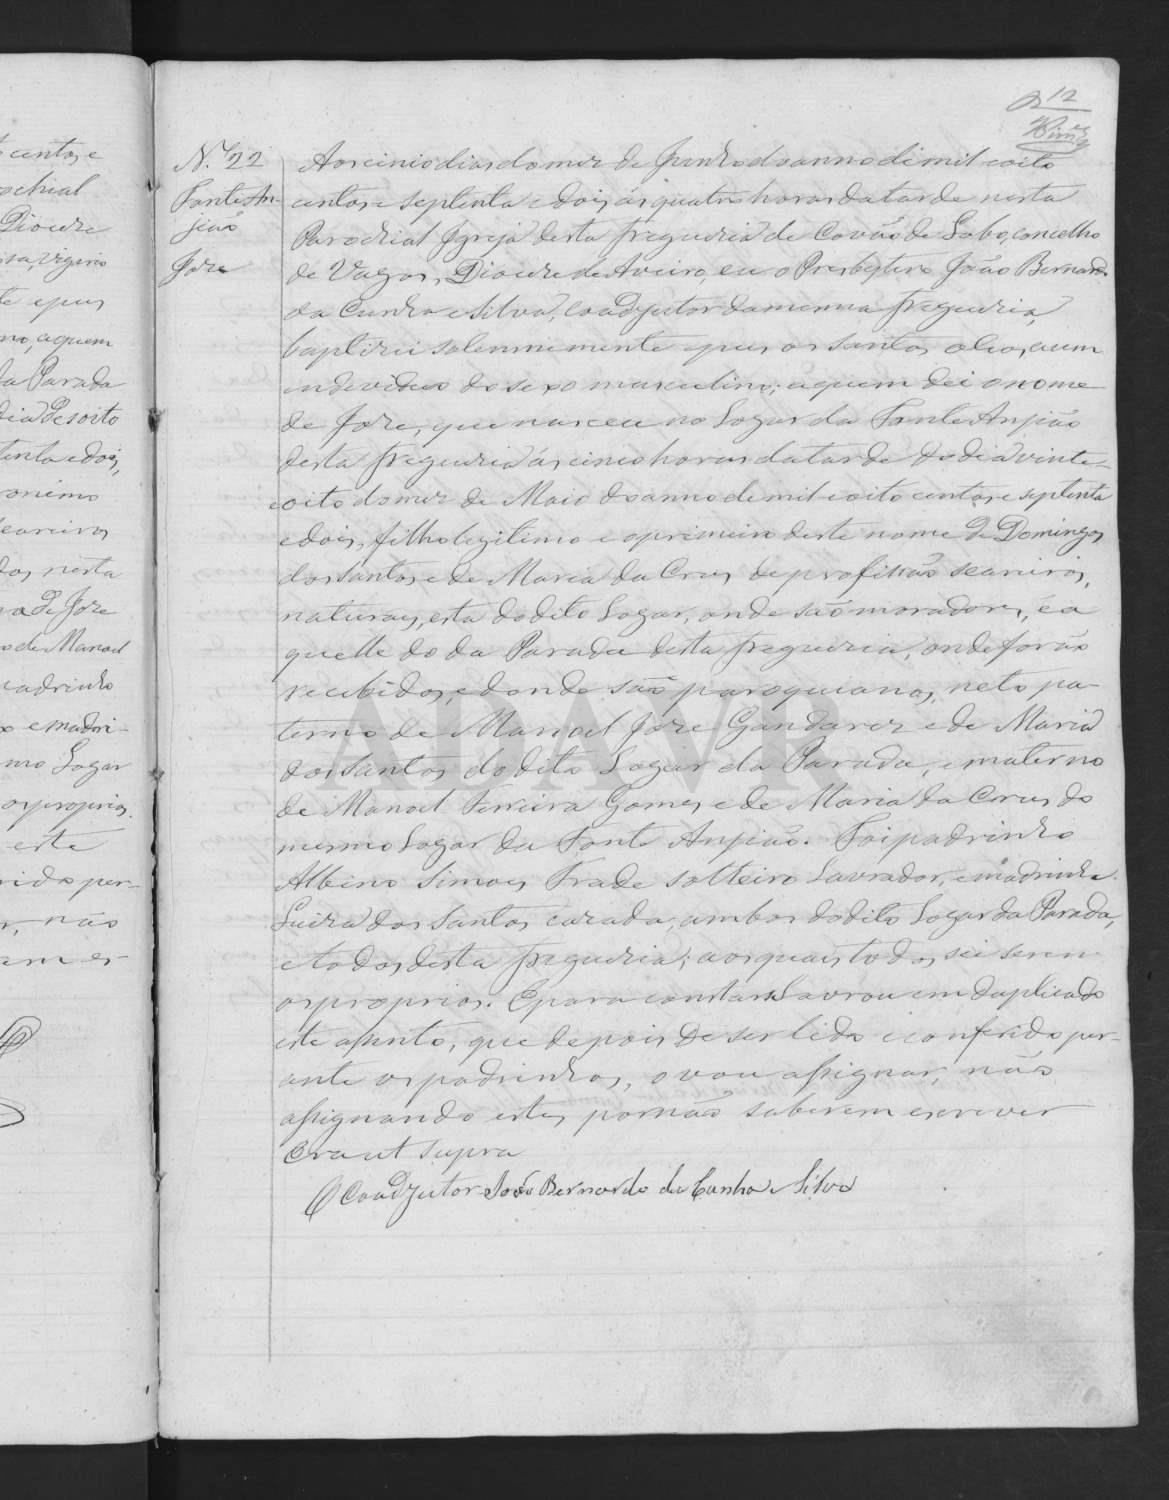 12
N.º 22
Fonte An-
jião
Joze
Aos cinco dias do mez de Junho do anno de mil e oito
centos e septenta e dois, ás quatro horas da tarde nesta
Parochial Igreja desta freguezia de Covão de Lobo, concelho
de Vagos, Dioceze de Aveiro, eu o Presbytero João Bernardo
da Cunha e Silva, Coadjutor da mesma freguezia,
baptizei solemnemente e puz os santos oleos, a um
individuo do sexo masculino; a quem dei o nome
de Joze, que nasceu no Logar da Fonte Anjião
desta freguezia ás cinco horas da tarde do dia vinte
e oito do mez de Maio do anno de mil e oito centos e septenta
e dois, filho legitimo e o primeiro deste nome de Domingos
dos Santos e de Maria da Cruz de profissão seareiros,
naturaes, esta do dito Logar, onde são moradores, e a
quelle do da Parada desta freguezia, onde forão
recebidos, e donde são paroquianos, neto pa-
terno de Manoel Joze Gandarez e de Maria
dos Santos do dito Logar da Parada, e materno
de Manoel Ferreira Gomes e de Maria da Cruz do
mesmo Logar da Fonte Anjião. Foi padrinho
Albino Simoes Frade solteiro Lavrador, e madrinha
Luiza dos Santos cazada, ambos do dito Logar da Parada,
e todos desta freguezia; aos quaes todos sei serem
os proprios. E para constar Lavrou em duplicado
este assento, que depois de ser lido e conferido per-
ante os padrinhos, o vou assignar, não
assignando estes por não saberem escrever
Era ut supra
O Coadjutor João Bernardo da Cunha e Silva
ADAVR
centos e
ochial
Dioceze
Vigario
e puz
no, a quem
da Parada
dia Dezoito
tenta e dois,
ronimo
seareiros
dos nesta
de Joze
de Manoel
padrinho
e madri-
mo Logar
os proprios.
este
rido per-
não